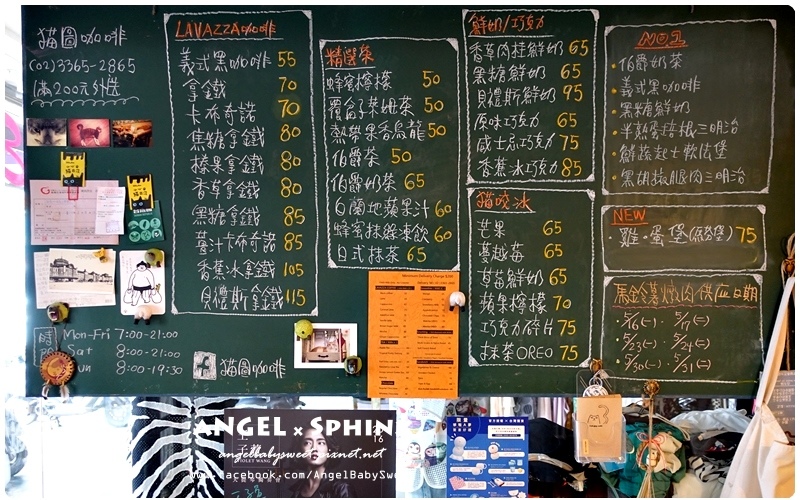 貓圖咖啡
(02)3365-2865
滿200元外送
LAVAZZA咖啡
義式黑咖啡 55
拿鐵 70
卡布奇諾 70
焦糖拿鐵 80
榛果拿鐵 80
香草拿鐵 80
黑糖拿鐵 85
薑汁卡布奇諾 85
香蕉冰拿鐵 105
貝禮斯拿鐵 115
精選茶
蜂蜜檸檬 50
覆盆子茱姆茶 50
熱帶果香烏龍 50
伯爵茶 50
伯爵奶茶 65
白蘭地蘋果汁 60
蜂蜜抹綠凍飲 60
日式抹茶 65
鮮奶/巧克力
香草肉桂鮮奶 65
黑糖鮮奶 65
貝禮斯鮮奶 95
原味巧克力 65
威士忌巧克力 75
香蕉冰巧克力 85
貓咬冰
芒果 65
蔓越莓 65
草莓鮮奶 65
蘋果檸檬 70
巧克力碎片 75
抹茶OREO 75
NO1
伯爵奶茶
義式黑咖啡
黑糖鮮奶
半熟蛋培根三明治
鮮蔬起士軟法堡
黑胡椒腿肉三明治
NEW
雞·蛋堡 75
馬鈴薯燉肉供应日期
5/16(一) 5/17(二)
5/23(一) 5/24(二)
5/30(一) 5/31(二)
時 Mon-Fri 7:00-21:00
Sat 8:00-21:00
Sun 8:00-19:30
貓圖咖啡
ANGEL × SPHIN
angelbabysweet.pixnet.net
www.facebook.com/AngelBabySwe